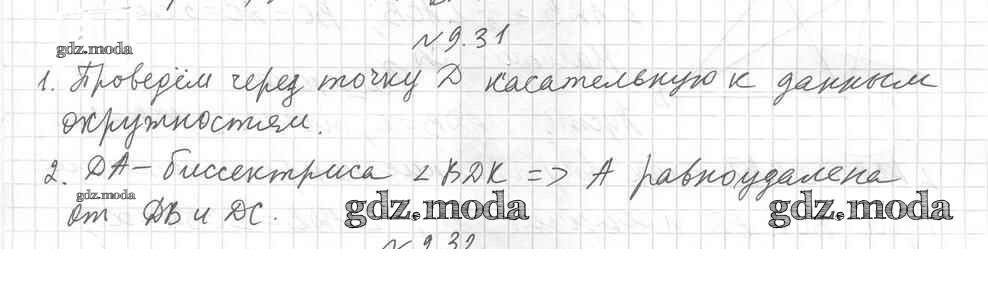 №9.31
gdz.moda
1. Проведём через точку D касательную к данным
окружностям.
2. DA – биссектриса ∠BDK => A равноудалена
gdz.moda
от DB и DC.
gdz.moda
gdz.moda
№9.32